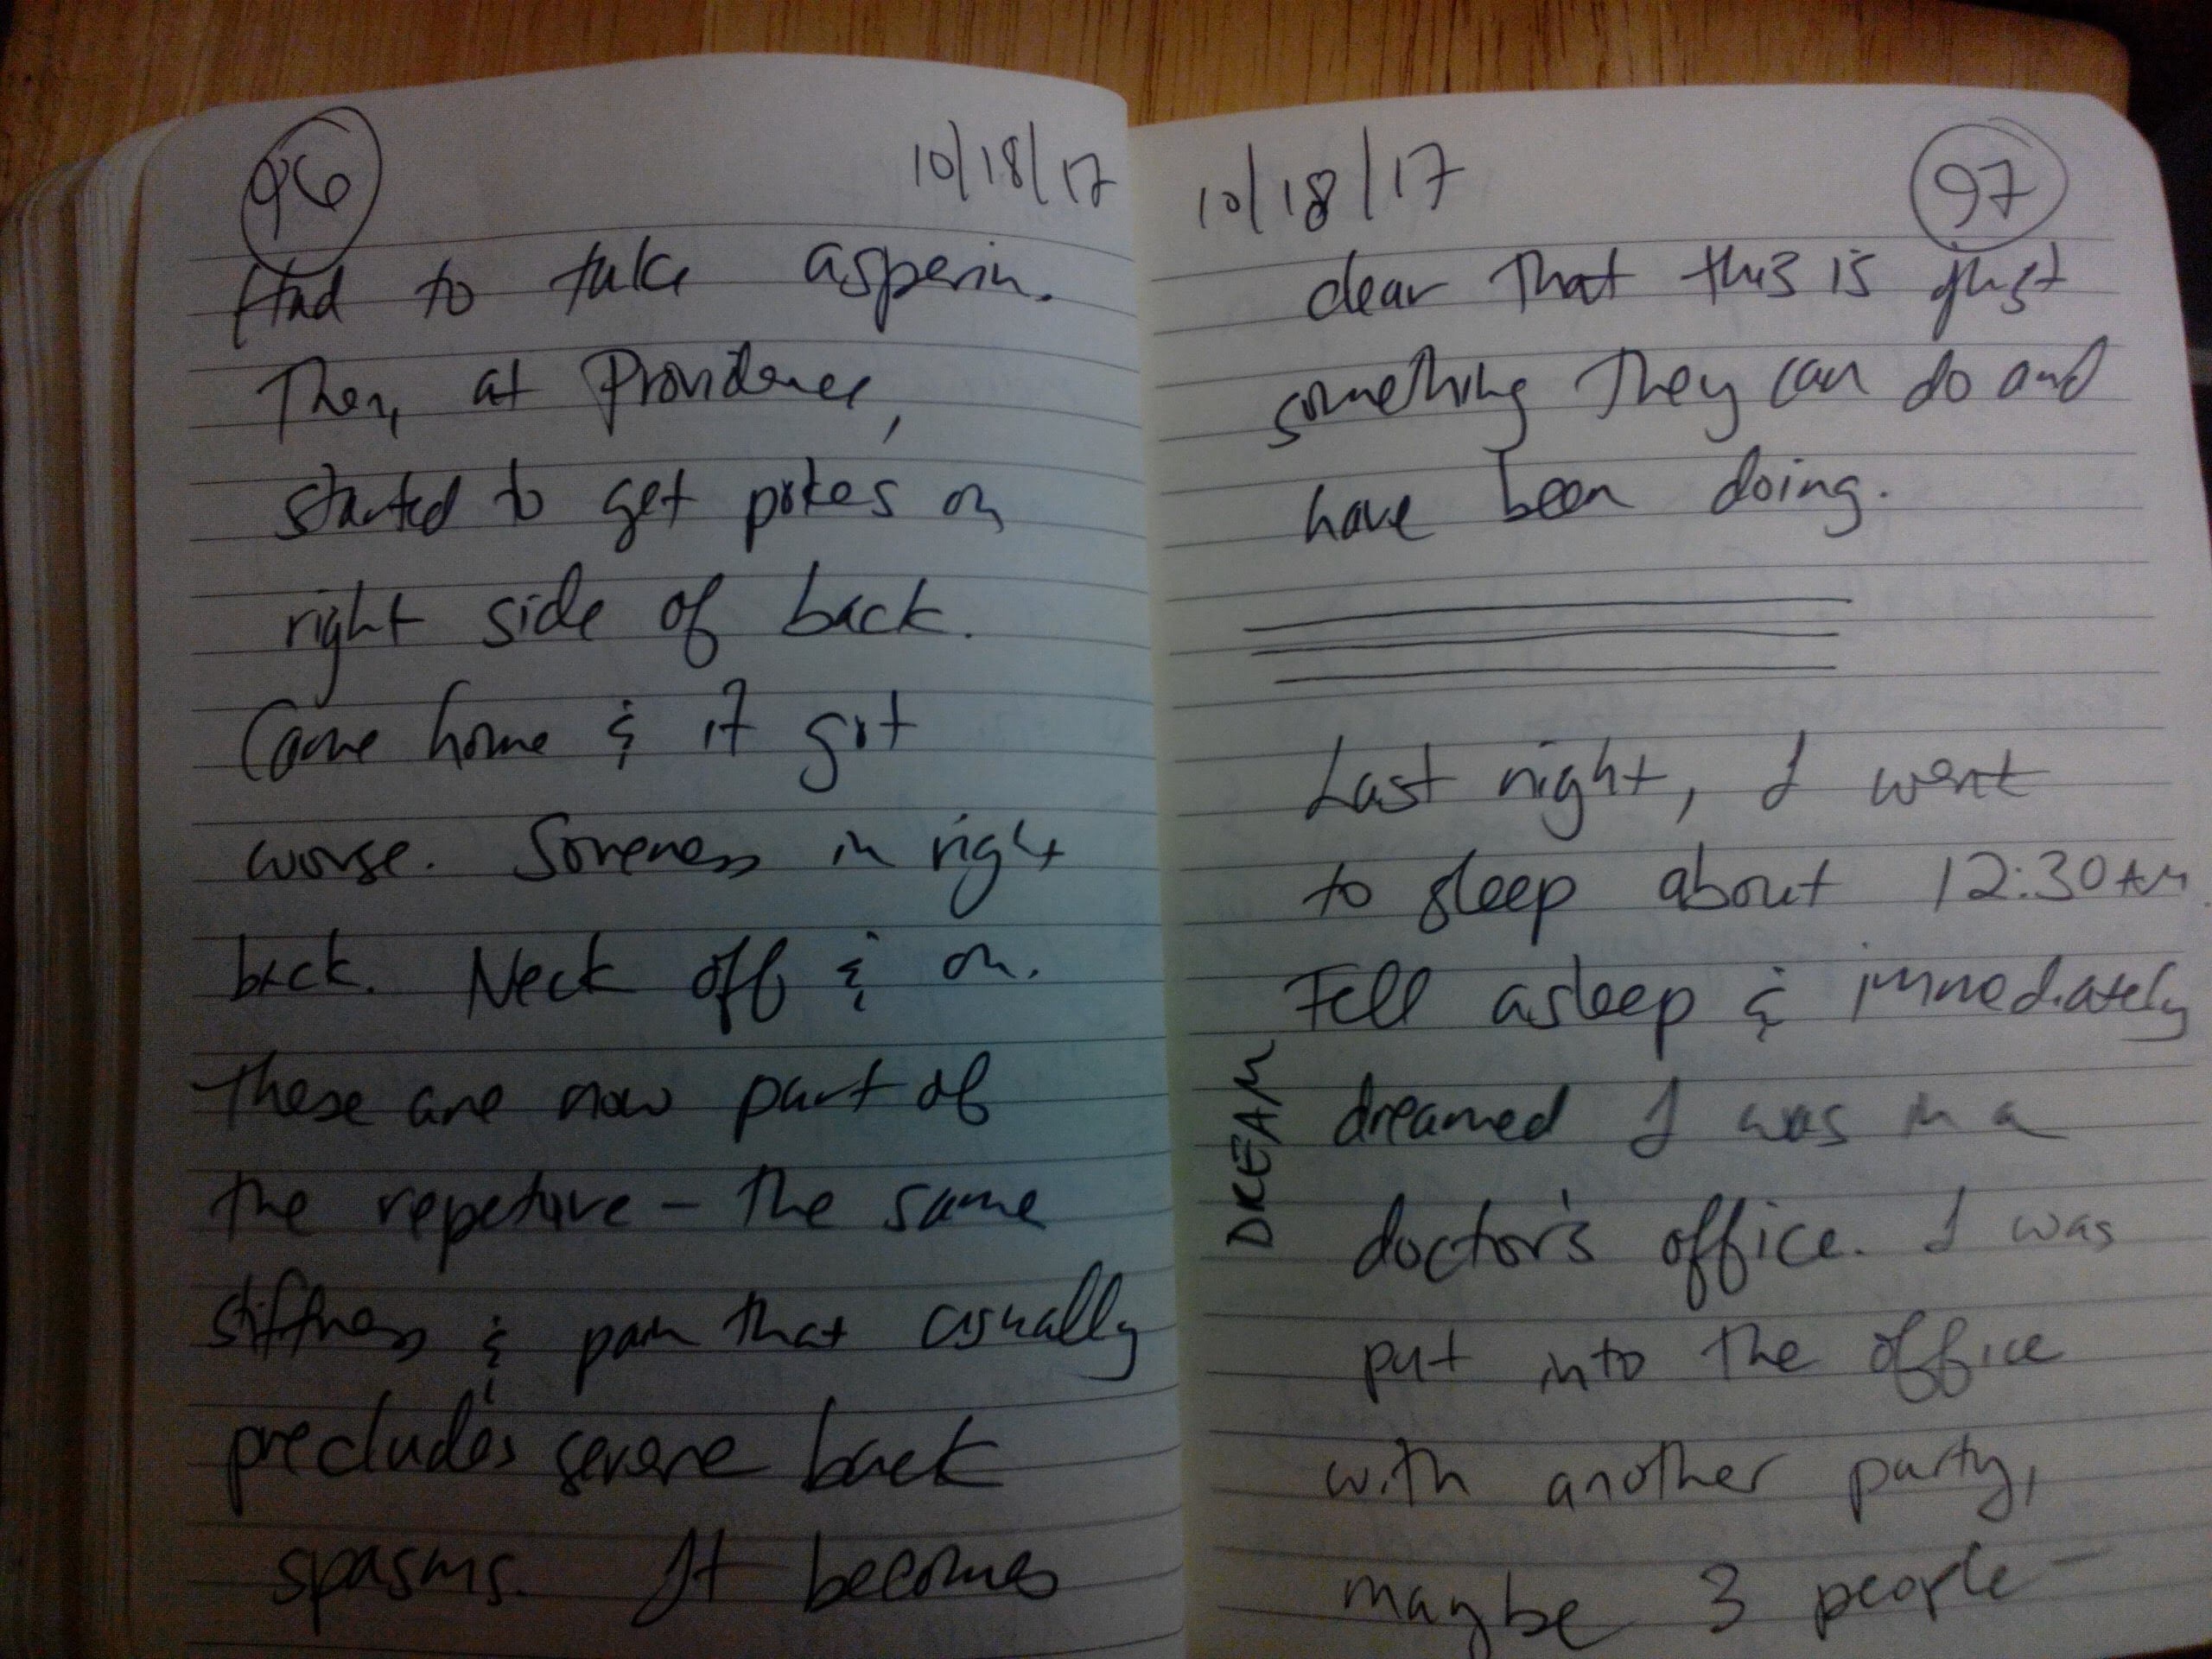 96
10/18/17
Had to take asperin.
Then, at Providence,
started to get pokes on
right side of back.
Came home & it got
worse. Soreness in right
back. Neck off & on.
These are now part of
the repetive - the same
stiffness & pain that usually
precludes severe back
spasms. It becomes
10/18/17
97
clear that this is just
something they can do and
have been doing.
Last night, I went
to sleep about 12:30 AM.
Fell asleep & immediately
DREAM
dreamed I was in a
doctor's office. I was
put into the office
with another party,
maybe 3 people -